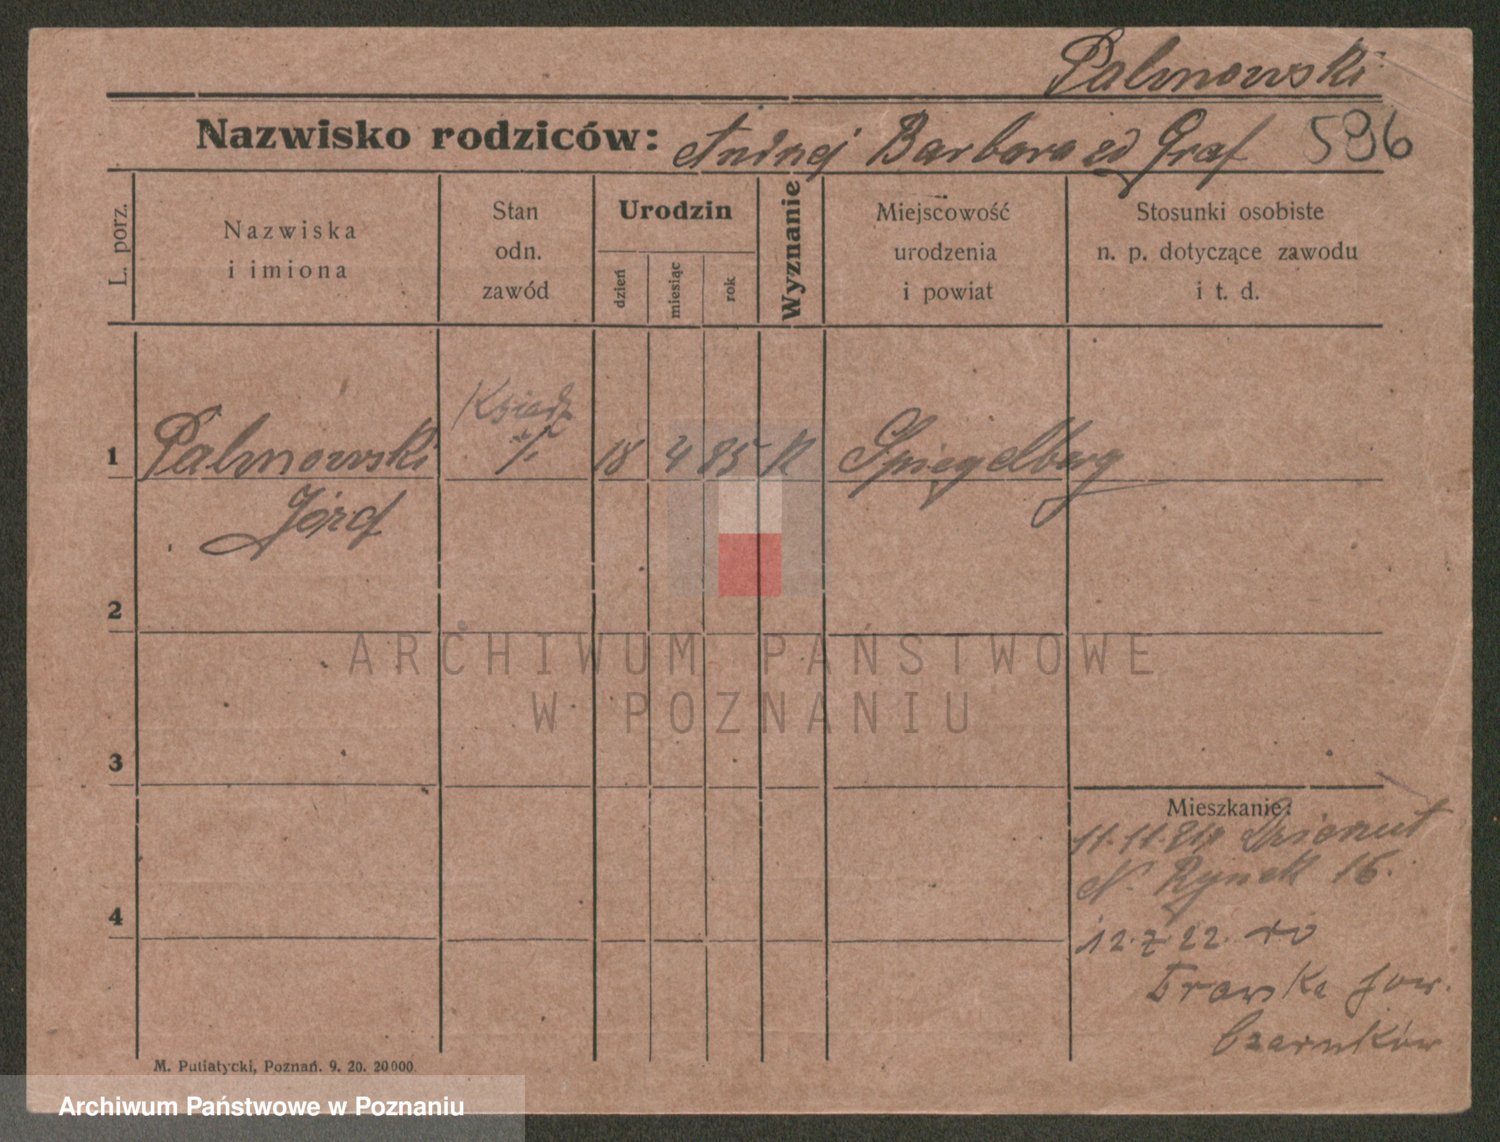 Palmowski
Nazwisko rodziców: Andrzej Barbara zd Graf 596
L. porz.
Nazwiska
i imiona
Stan
odn.
zawód
Urodzin
dzień
miesiąc
rok
Wyznanie
Miejscowość
urodzenia
i powiat
Stosunki osobiste
n. p. dotyczące zawodu
i t. d.
Ksiądz
1 Palmowski 18 4 85 K Spiegelberg
Józef
2
ARCHIWUM PAŃSTWOWE
W POZNANIU
3
Mieszkanie:
11.11.21
N. Rynek 16.
4
12.7.22.
pow.
Czarnków
M. Putiatycki, Poznań. 9. 20. 20000.
Archiwum Państwowe w Poznaniu